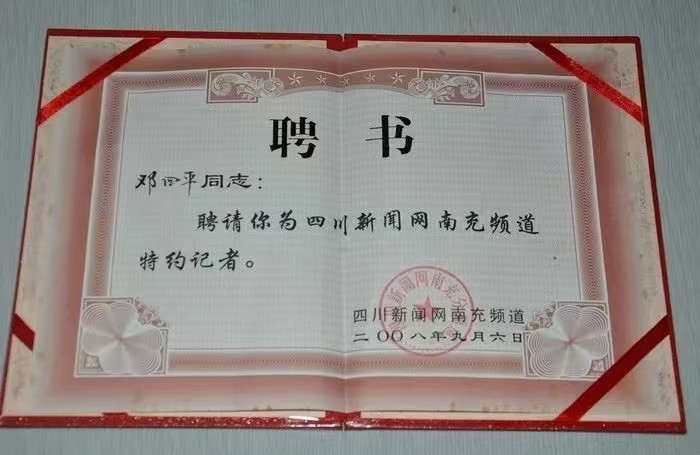 聘书
邓四平同志：
聘请你为四川新闻网南充频道
特约记者。
四川新闻网南充频道
二00八年九月六日
新闻网南充